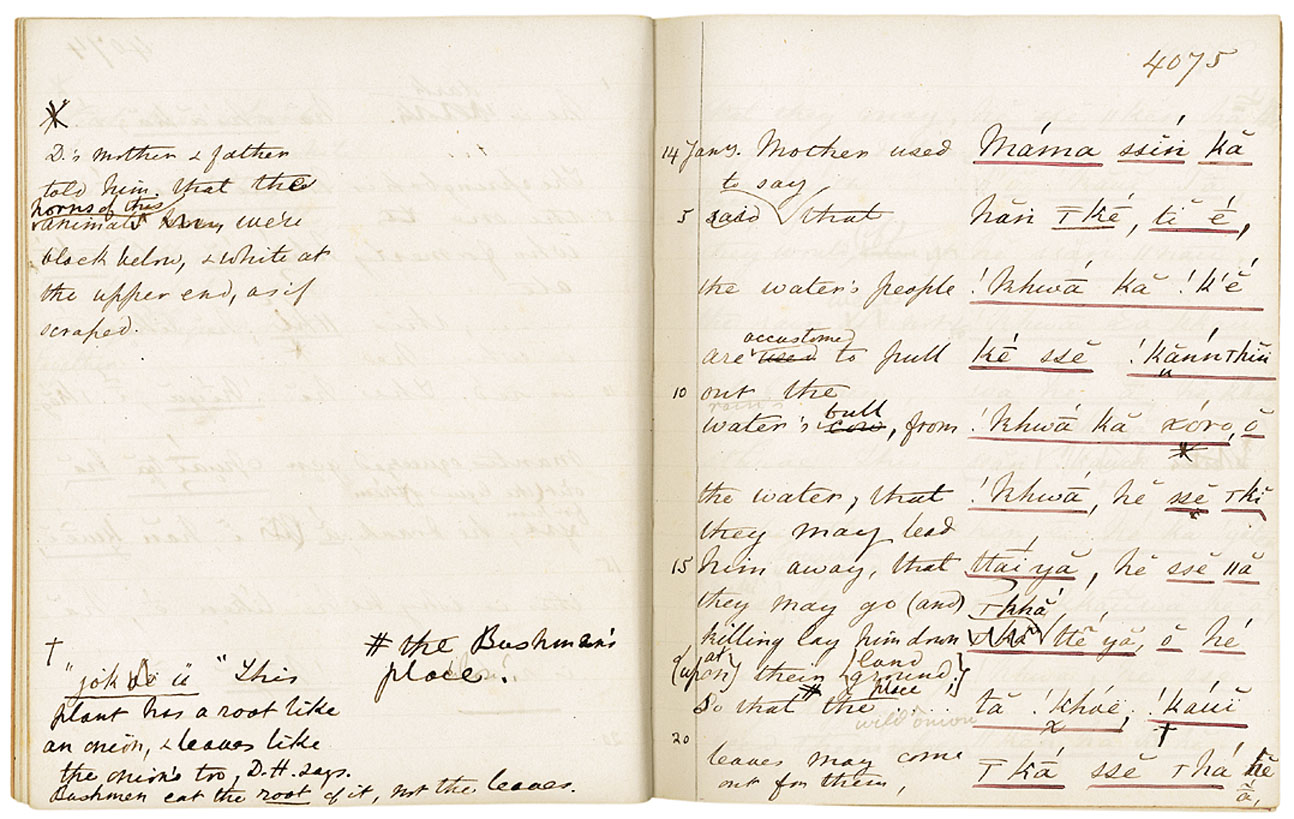 D.'s mother & father
told him that the
horns of this
animal were
black below, & white at
the upper end, as if
scraped.
†
"This
plant has a root like
an onion, & leaves like
the onion's too, D.H. says.
Bushmen eat the root of it, not the leaves.
# the Bushman's
place.
4075
14 Jany. Mother used Máma ssĭń kă
to say
5 said that hăń ⊤ké, tĭ é,
the water's people !khwā́ kă !k'é
are used accustomed to pull ké ssĕ
10 out the
water's cow bull, from !khwā́ kă xóro, ŏ
the water, that !khwā́, hĕ ssĕ ⊤kĭ
they may lead
15 him away, that ttāí yă, hĕ ssĕ ǁă
they may go (and) ⊤khá
killing lay him down ttĕ yă, ŏ hé
(upon) at their {land ground place;}
so that # the ..... tă !khóë, !káuï
wild onion
20
leaves may come ⊤ká ssĕ ⊤há hĕ
out for them, ā,